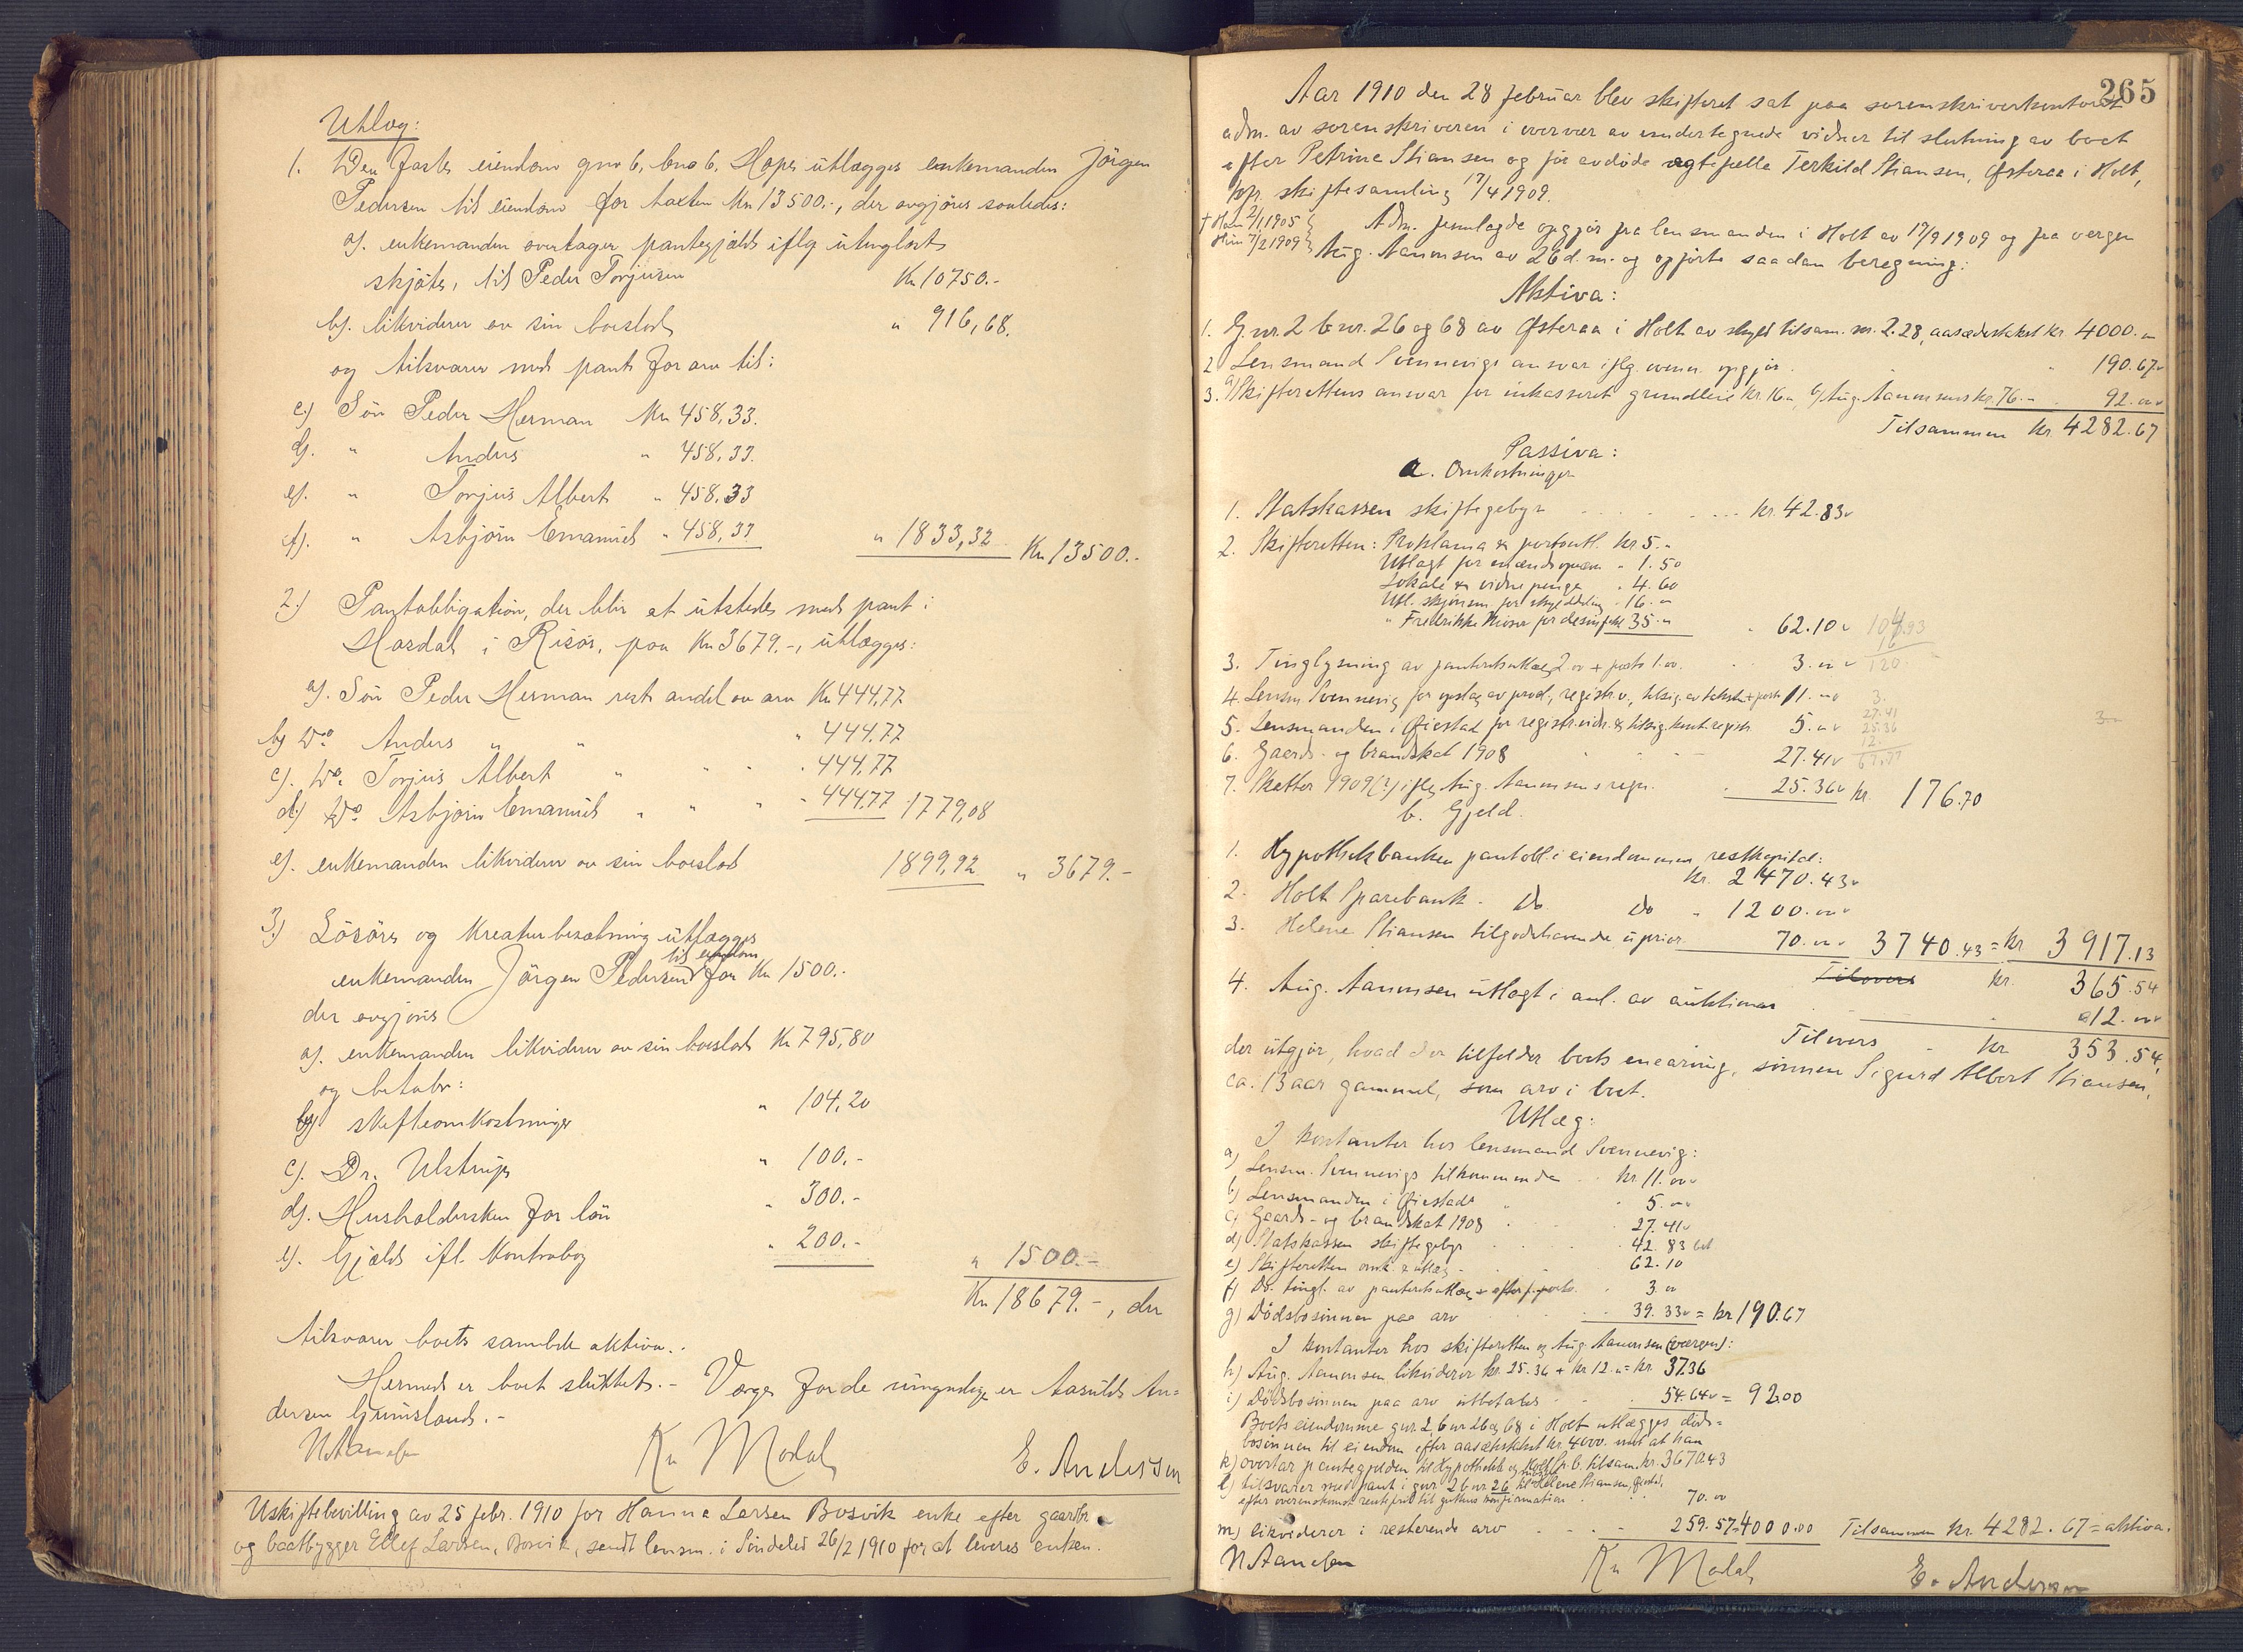 Utlog:
1. Den faste eiendom gno 6, bno 6, Hope utlægges enkemanden Jörgen
Pedersen til eiendom for taxten Kr 13500.-, der avgjöres saaledes:
a). enkemanden overtager pantegjæld iflg utinglest
skjöte, til Peder Torjusen Kr 10750.-
b). likviderer av sin boeslod " 916,68.
og tilsvarer mod pant for arv til:
c.) Sön Peder Herman Kr 458,33.
d). " Anders " 458,33.
e). " Torjus Albert " 458,33
f). " Asbjörn Emanuel " 458,33 " 1833,32 Kr 13500.-
2.) Pantobligation, der blir at utstede med pant i
Mordal i Risör, paa Kr 3679.-, utlægges:
a). Sön Peder Herman rest andel av arv Kr 444,77
b) Do Anders " " " 444,77
c). Do. Torjus Albert " " " " 444,77
d.) Do Asbjörn Emanuel " " " " 444,77 1779,08
e). enkemanden likviderer av sin boeslod 1899,92 " 3679.-
3.) Lösöre og Kreaturbesætning utlægges
til eiendom
enkemanden Jörgen Pedersen for Kr 1500.-
der avgjöres
a). enkemanden likviderer av sin boeslod Kr 795,80
og betaler:
b) skifteomkostninger " 104,20
c). Dr. Ulstrup " 100.-
d). Husholdersken for lön " 300.-
e). Gjæld ifl. Kontrabog " 200.- " 1500.-
Kr 18679.-, der
tilsvarer boets samlede aktiva..
Hermed er boet sluttet.- Verge for de umyndige er Aasuld An=
dersen Grimsland.-
Kr Modal E. Andersen
Uskiftebevilling av 25 febr. 1910 for Hanna Larsen Bosvik enke efter gaardbr.
og baatbygger Ellef Larsen, Bosvik, sendt lensm. i Söndeled 26/2 1910 for at leveres enken.
265
Aar 1910 den 28 februar blev skifteret sat paa sorenskriverkontoret
adm. av sorenskriveren i overvær av undertegnede vidner til slutning av boet
efter Petrine Stiansen og för avdöde ægtefælle Terkild Stiansen, Østeraa i Holt,
kfr. skiftesamling 17/4 1909.
† Han 2/1 1905
Hun 7/2 1909 } Adm. fremlagde opgjör fra lensmanden i Holt av 17/9 1909 og fra vergen
Aug. Aanonsen av 26 d. m. og opgjorte saadan beregning:
Aktiva:
1. G.nr. 2 b.nr. 26 og 68 av Østeraa i Holt av skyld tilsam. m. 2.28, aasædestakst kr. 4000.-
2 Lensmand Svennevigs ansvar iflg. ovenn. opgjör. " 190.67
3. a) Skifterettens ansvar for inkasseret grundleie kr. 16.-, b) Aug. Aanonsens kr. 76.- " 92.-
Tilsammen kr. 4282.67
Passiva:
a. Omkostninger
1. Statskassen skiftegebyr kr. 42.83
2. Skifteretten: Proklama & portoutl. kr. 5.-
Utlagt for mændsopnævn " 1.50
Lokale & vidnepenge " 4.60
Utl. skjönsm. for skylddeling " 16.-
" Fredrikke for desinfekt. 35.- " 62.10
3. Tinglysning av panteretsutlæg 2.00 + porto 1.00. 3.-
4. Lensm. Svennevig for opslag av procl., registr.v., tilsig. av takstm. + porto 11.-
5. Lensmanden i Øiestad for registr.vidn. & tilsig. kont. registr. 5.-
6. Gaards- og brandskat 1908 27.41
7. Skatter 1909 (?) iflg. Aug. Aanonsens regn. 25.36 kr. 176.70
b. Gjeld.
1. Hypothekbanken pantobl. i eiendommen, restkapital:
kr. 2470.43
2. Holt Sparebank. Do. Do " 1200.-
3. Helene Stiansen tilgodehavende uprior. 70.- 3740.43 = kr 3917.13
Tilovers kr. 365.54
4. Aug. Aanonsen utlagt i anl. av auktioner " 12.-
Tilovers kr 353.54,
der utgjör, hvad der tilfalder boets enearving, sönnen Sigurd Albert Stiansen,
ca. 13 aar gammel, som arv i boet.
Utlæg:
I kontanter hos lensmand Svennevig:
a) Lensm. Svennevigs tilkommende kr 11.-
b) Lensmanden i Øiestad " 5.-
c) Gaards- og brandskat 1908 27.41
d) Statskassen skiftegebyr 42.83
e) Skifteretten omk. & utlæg 62.10
f) Do. tingl. av panteretsutlæg + porto 3.00
g) Dödsbosönnen paa arv 39.33 = kr 190.67
I kontanter hos skifteretten og Aug. Aanonsen (vergen):
h) Aug. Aanonsen likviderer kr. 25.36 + kr 12.- = kr. 37.36
i) Dödsbosönnen paa arv utbetales 54.64 = 92.00
Boets eiendomme gnr. 2 bnr 26 og 68 i Holt utlægges döds=
bosönnen til eiendom efter aasætestakst kr. 4000. mot at han
k) overtar pantegjælden til Hypothekb. og Holt Sp.b. tilsam. kr. 3670.43
l) tilsvarer med pant i gnr. 2 bnr 26 til Helene Stiansen,
efter overenskomst rentefrit til guttens konfirmation 70.00
m) likviderer i resterende arv 259.57 = 4000.00 Tilsammen kr. 4282.67 = aktiva.
Kr Modal E. Andersen